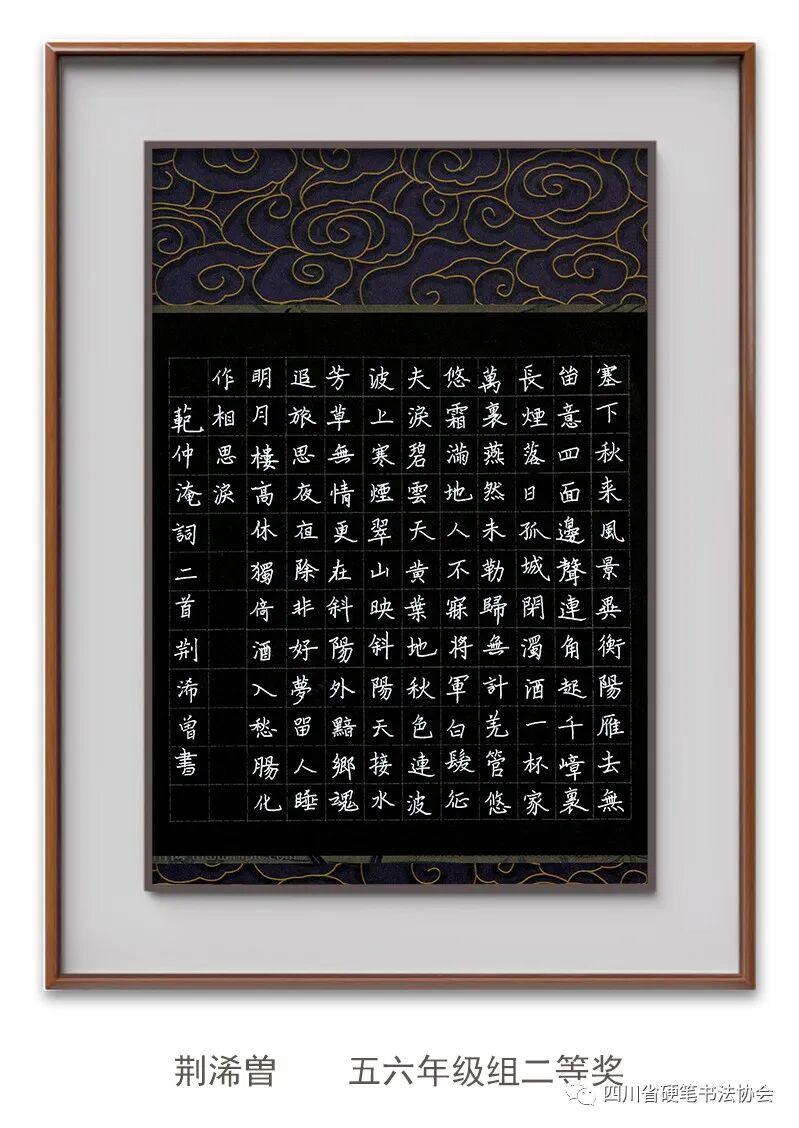 塞下秋来風景異衡陽雁去無
留意四面邊聲連角起千嶂裏
長煙落日孤城閉濁酒一杯家
萬裏燕然未勒歸無計羌管悠
悠霜滿地人不寐將軍白髮征
夫淚碧雲天黄葉地秋色連波
波上寒煙翠山映斜陽天接水
芳草無情更在斜陽外黯鄉魂
追旅思夜夜除非好夢留人睡
明月樓高休獨倚酒入愁腸化
作相思淚
範仲淹詞二首荆浠曽書
荆浠曽 五六年级组二等奖
四川省硬笔书法协会